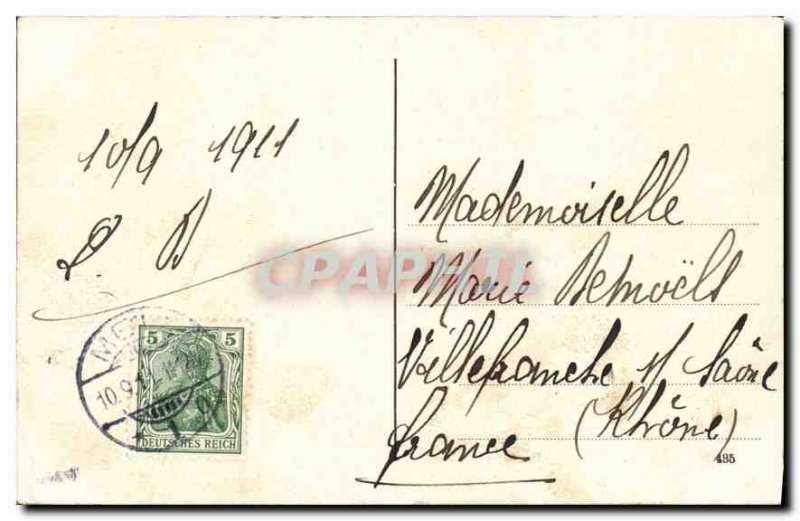 10/9 1911
L. D
Mademoiselle
Marie
Villefranche s/ Saône
france (Rhône)
435
5 5
DEUTSCHES REICH
10.9.11
CPAPHIL